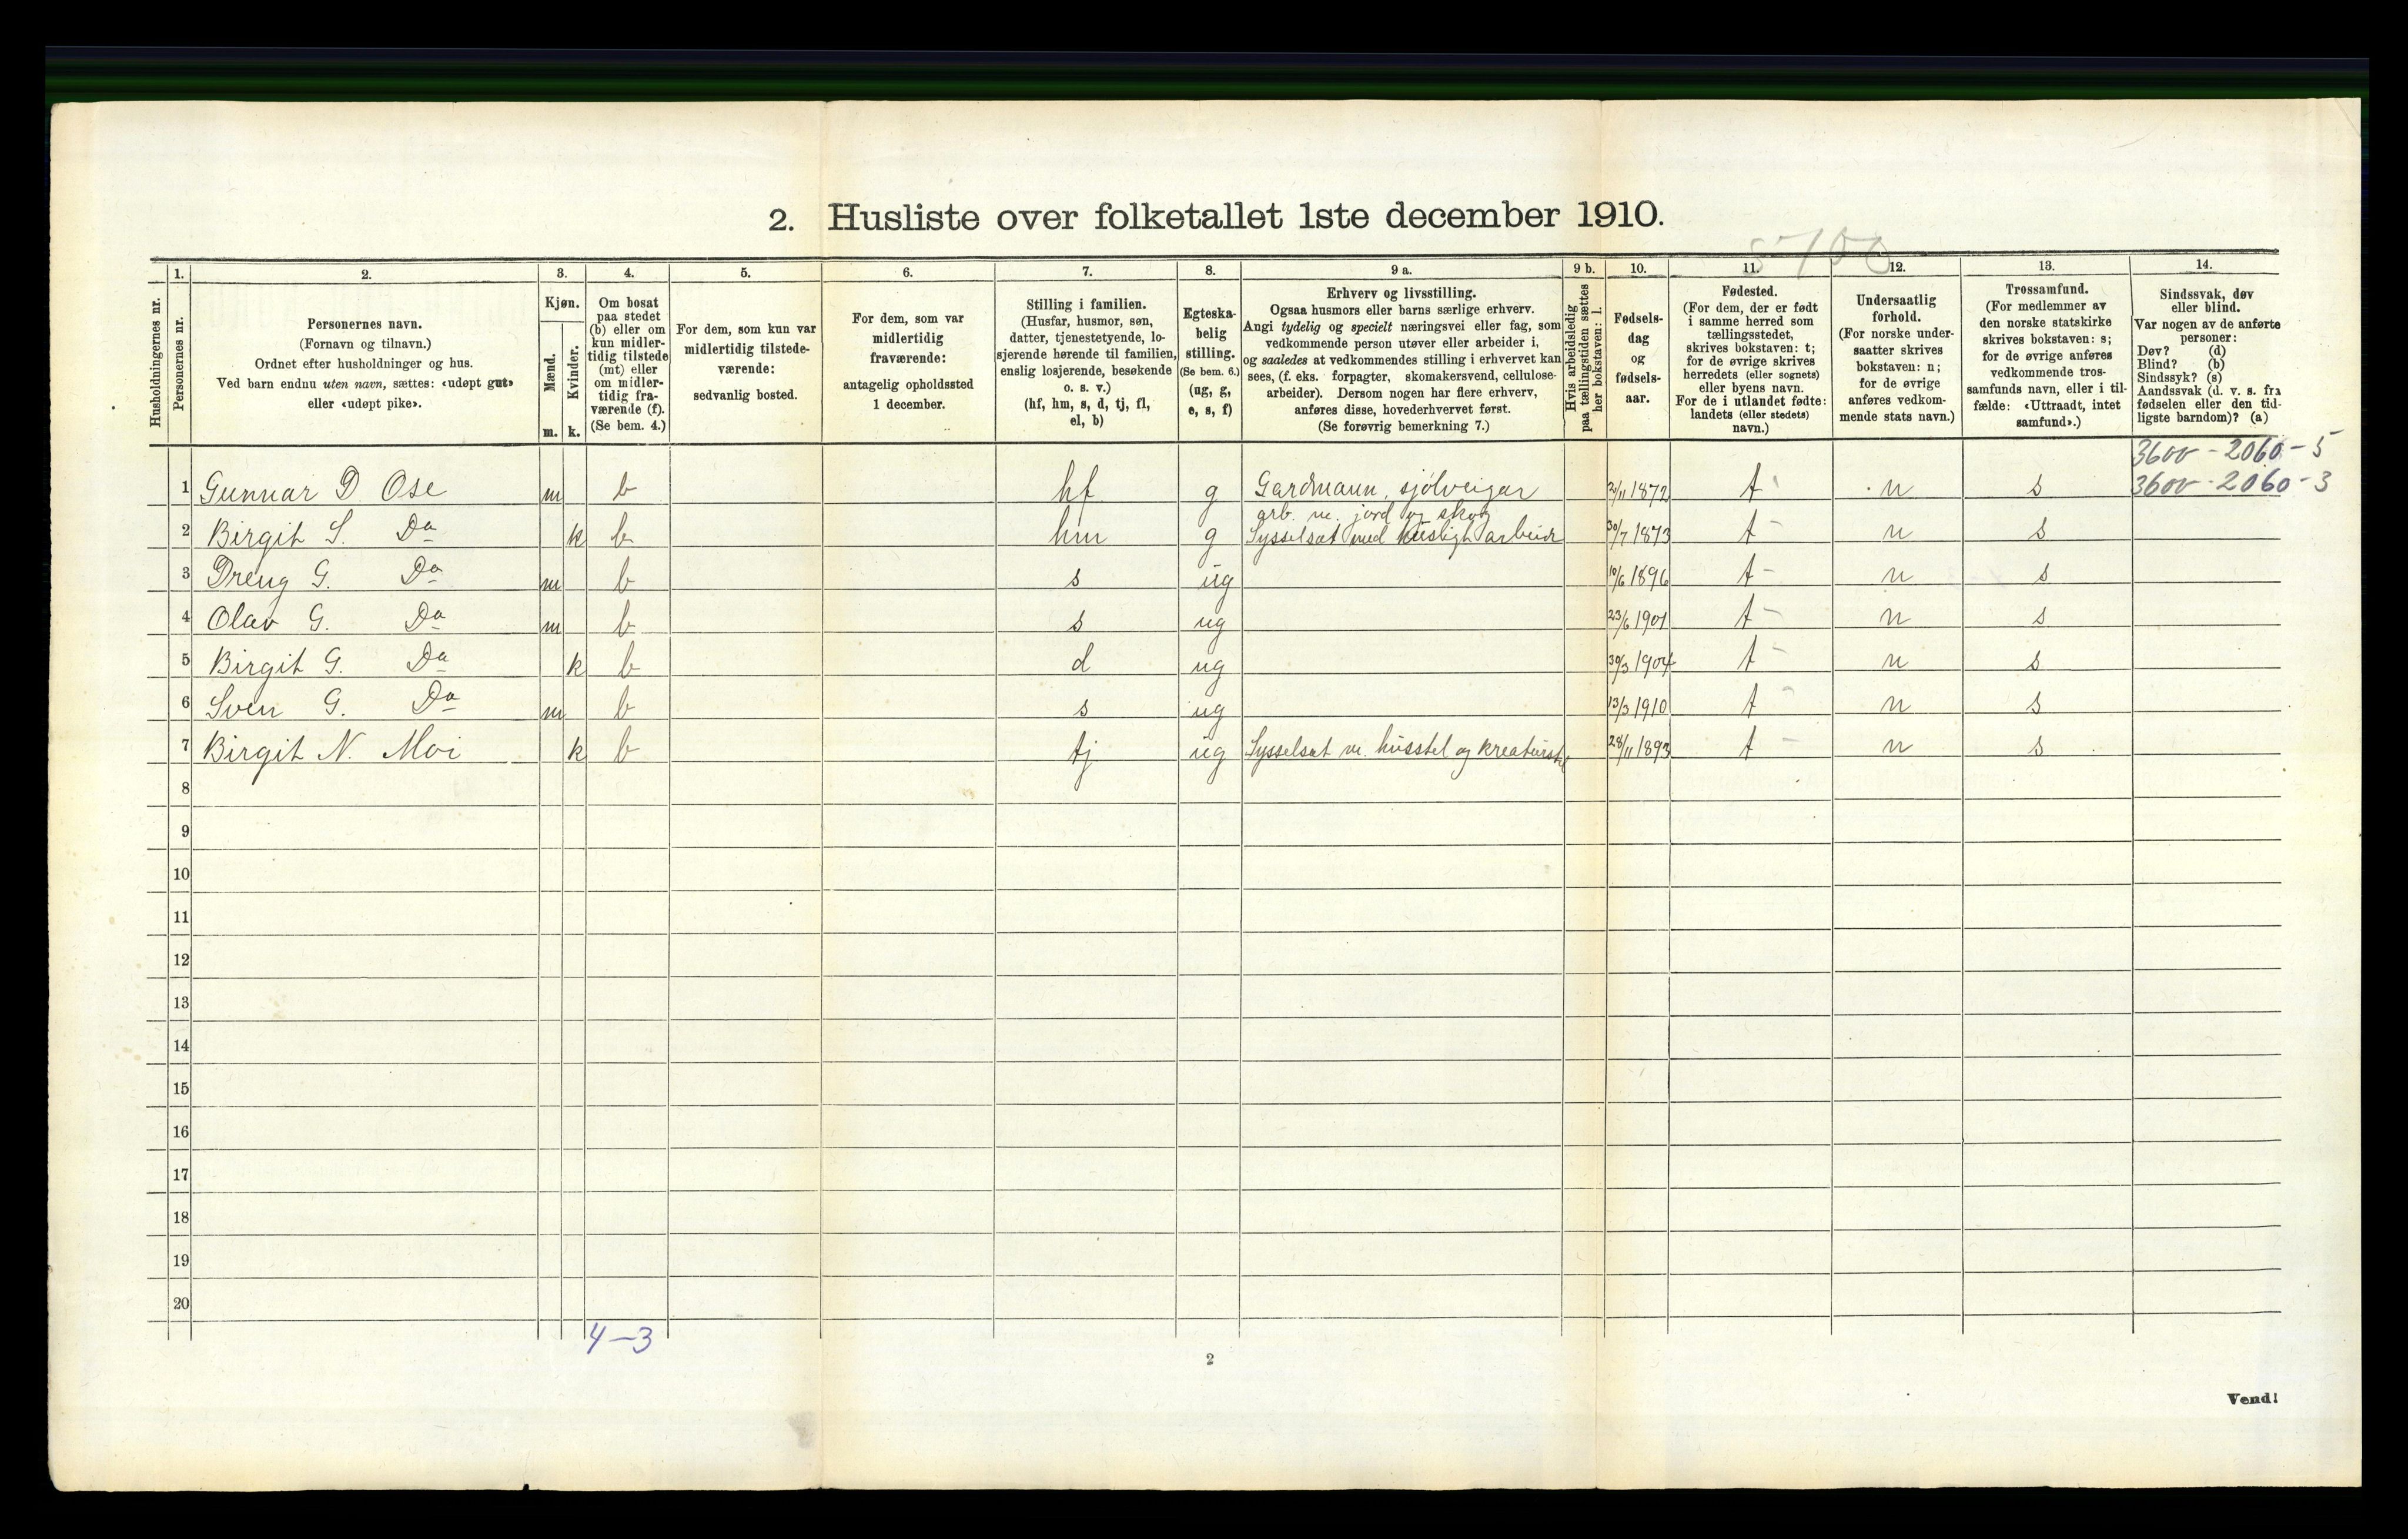 2. Husliste over folketallet 1ste december 1910.
5700
Husholdningernes nr.
1.
Personernes nr.
2.
Personernes navn.
(Fornavn og tilnavn.)
Ordnet efter husholdninger og hus.
Ved barn endnu uten navn, sættes: «udøpt gut»
eller «udøpt pike».
3.
Kjøn.
Mænd.
m.
Kvinder.
k.
4.
Om bosat
paa stedet
(b) eller om
kun midler-
tidig tilstede
(mt) eller
om midler-
tidig fra-
værende (f).
(Se bem. 4.)
5.
For dem, som kun var
midlertidig tilstede-
værende:
sedvanlig bosted.
6.
For dem, som var
midlertidig
fraværende:
antagelig opholdssted
1 december.
7.
Stilling i familien.
(Husfar, husmor, søn,
datter, tjenestetyende, lo-
sjerende hørende til familien,
enslig losjerende, besøkende
o. s. v.)
(hf, hm, s, d, tj, fl,
el, b)
8.
Egteska-
belig
stilling.
(Se bem. 6.)
(ug, g,
e, s, f)
9 a.
Erhverv og livsstilling.
Ogsaa husmors eller barns særlige erhverv.
Angi tydelig og specielt næringsvei eller fag, som
vedkommende person utøver eller arbeider i,
og saaledes at vedkommendes stilling i erhvervet kan
sees, (f. eks. forpagter, skomakersvend, cellulose-
arbeider). Dersom nogen har flere erhverv,
anføres disse, hovederhvervet først.
(Se forøvrig bemerkning 7.)
9 b.
Hvis arbeidsledig
paa tællingstiden sættes
her bokstaven: l.
10.
Fødsels-
dag
og
fødsels-
aar.
11.
Fødested.
(For dem, der er født
i samme herred som
tællingsstedet,
skrives bokstaven: t;
for de øvrige skrives
herredets (eller sognets)
eller byens navn.
For de i utlandet fødte:
landets (eller stedets)
navn.)
12.
Undersaatlig
forhold.
(For norske under-
saatter skrives
bokstaven: n;
for de øvrige
anføres vedkom-
mende stats navn.)
13.
Trossamfund.
(For medlemmer av
den norske statskirke
skrives bokstaven: s;
for de øvrige anføres
vedkommende tros-
samfunds navn, eller i til-
fælde: «Uttraadt, intet
samfund».)
14.
Sindssvak, døv
eller blind.
Var nogen av de anførte
personer:
Døv? (d)
Blind? (b)
Sindssyk? (s)
Aandssvak (d. v. s. fra
fødselen eller den tid-
ligste barndom)? (a)
3600 - 2060 - 5
1 Gunnar D Ose m b hf g Gardmann, sjølveigar 2/11 1872 t n s 3600 - 2060 - 3
arb. m. jord og skog
2 Birgit S. Do k b hm g Sysselsat med husligt arbeide 30/7 1873 t n s
3 Dreng G. Do m b s ug 10/6 1896 t n s
4 Olav G. Do m b s ug 23/6 1901 t n s
5 Birgit G. Do k b d ug 30/3 1904 t n s
6 Sven G. Do m b s ug 13/3 1910 t n s
7 Birgit N. Moi k b tj ug Sysselsat m. husstel og kreaturstel 28/11 1893 t n s
8
9
10
11
12
13
14
15
16
17
18
19
20
4-3
2
Vend!